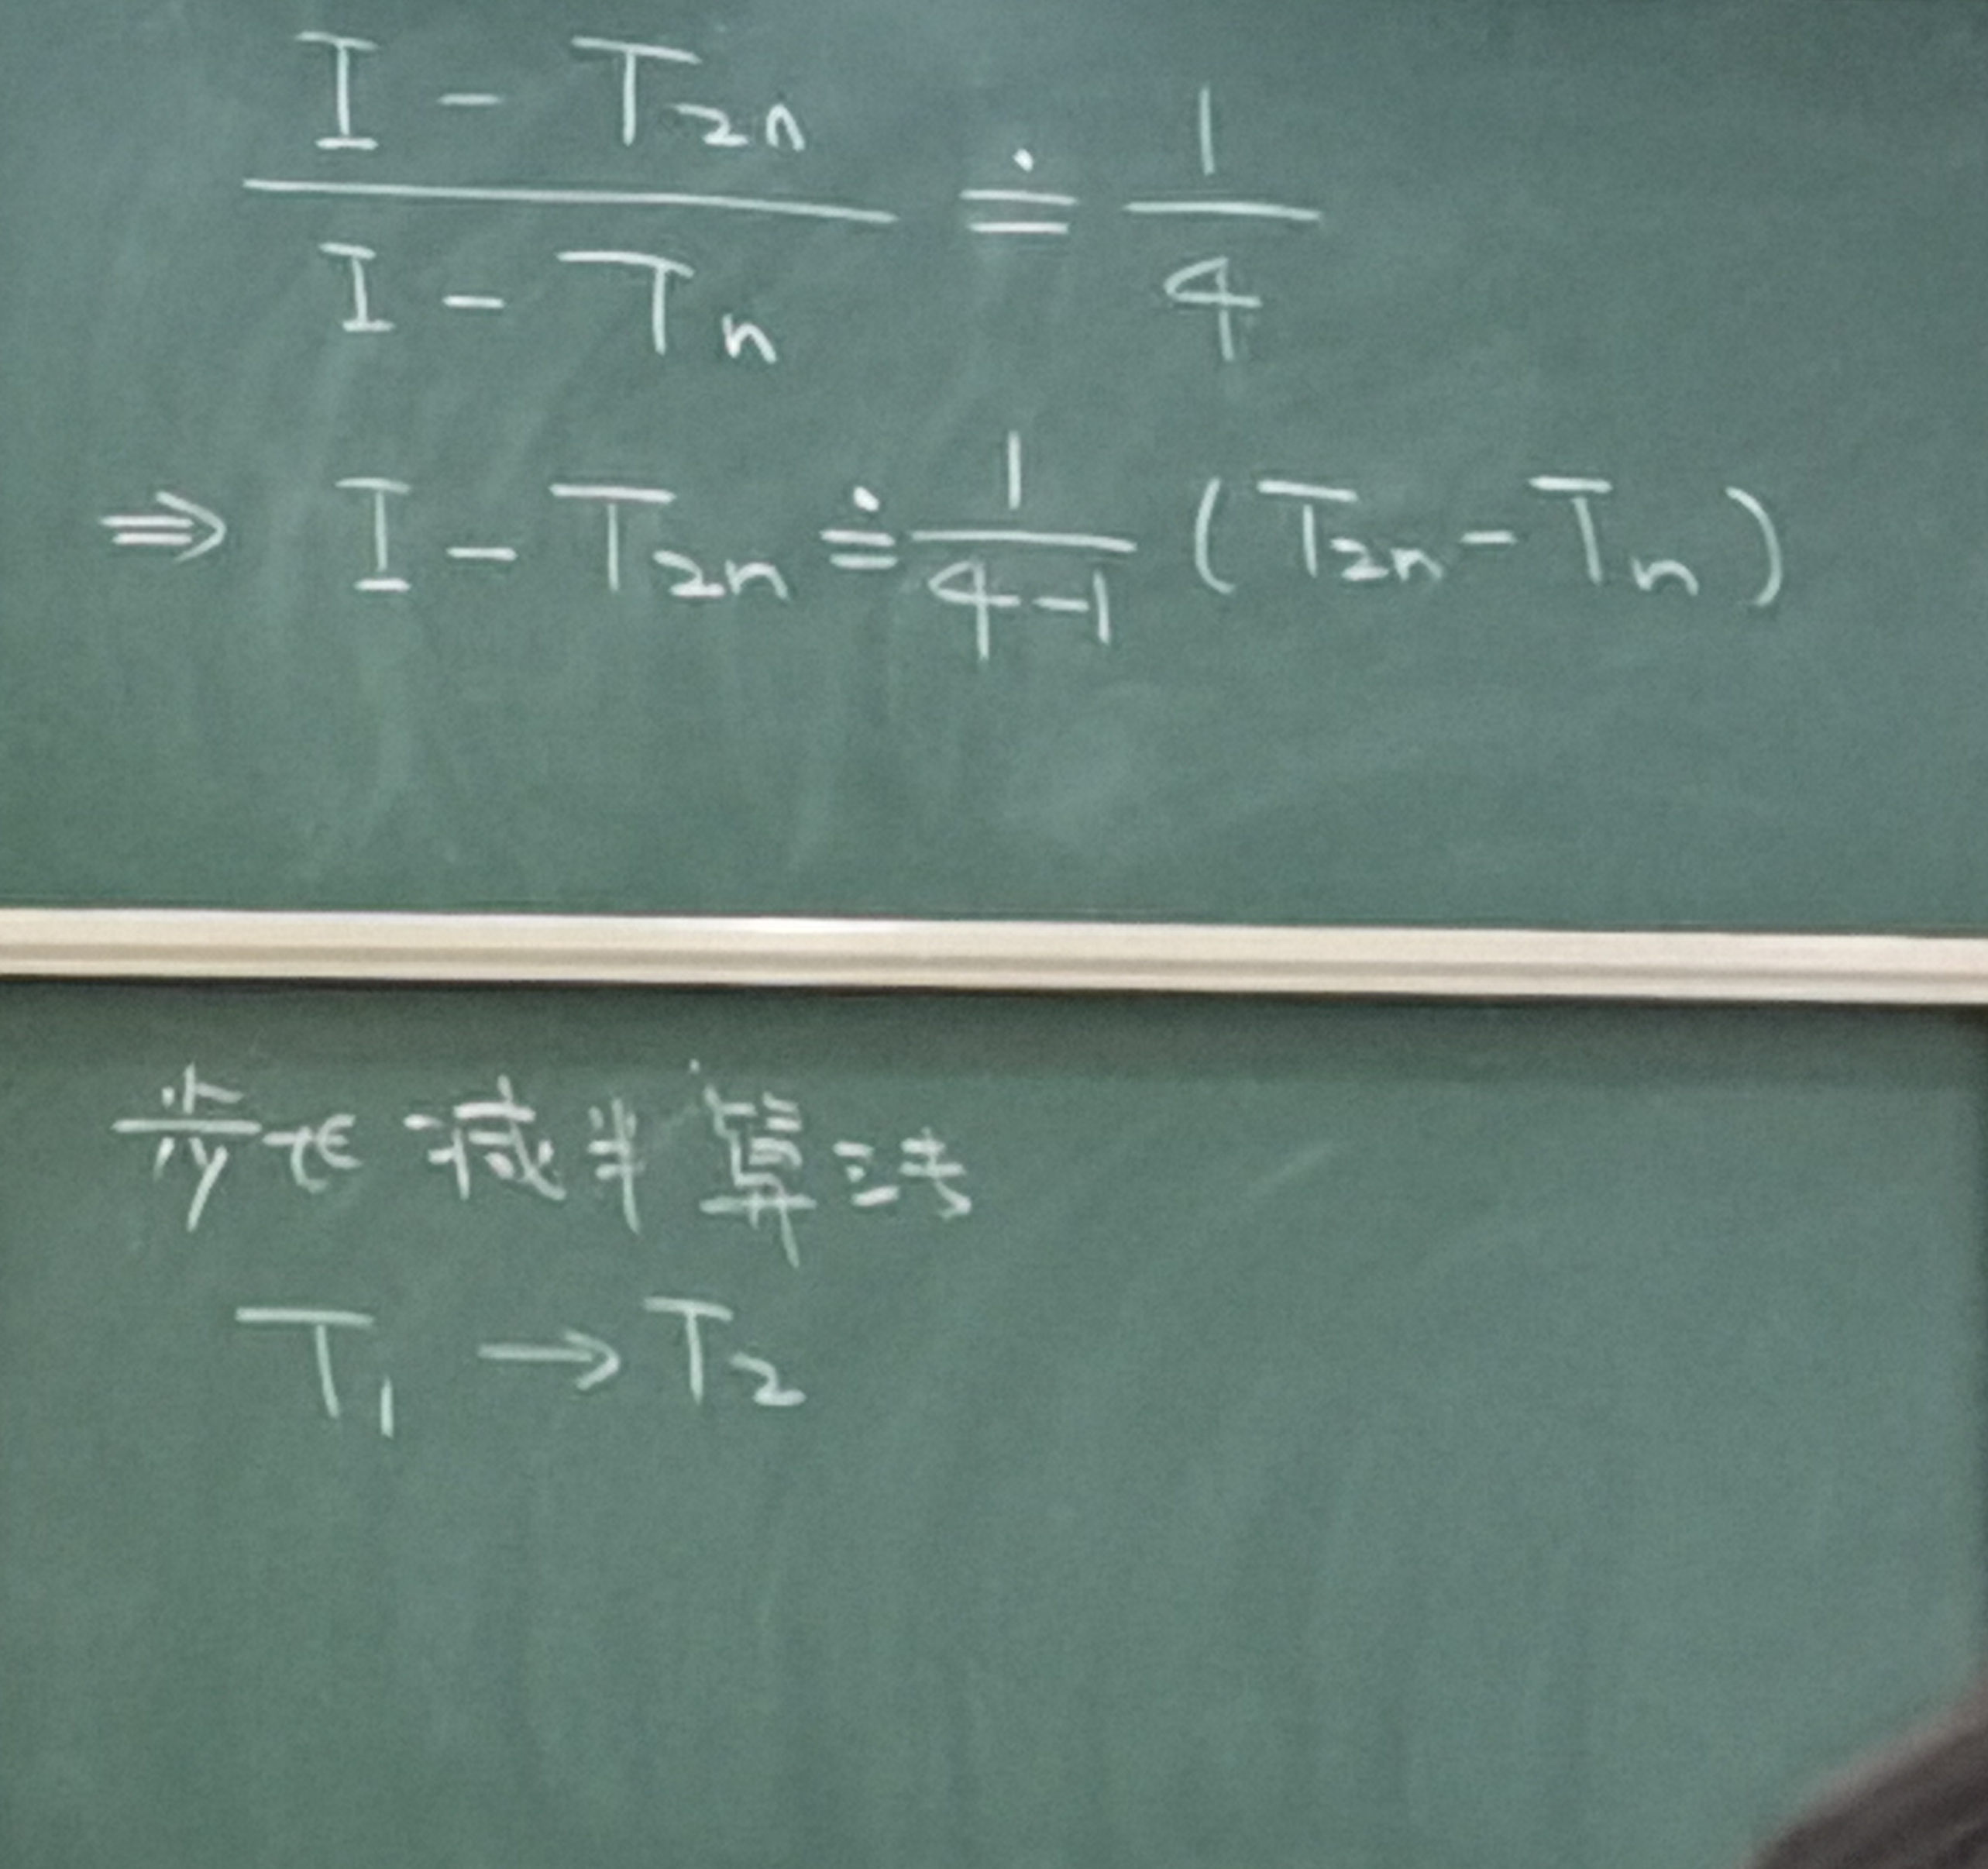 I - T₂ₙ / I - Tₙ ≐ 1/4
⇒ I - T₂ₙ ≐ 1/(4-1) (T₂ₙ - Tₙ)
步长减半算法
T₁ → T₂